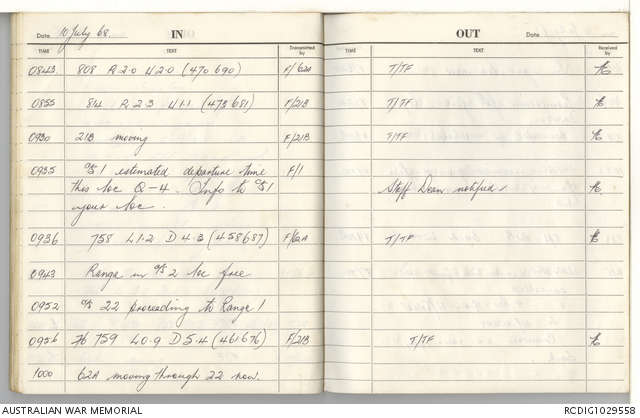 Date 10 July 68. IN OUT Date
TIME TEXT Transmitted by TIME TEXT Received by
0843 808 R 2.0 U 2.0 (470 690) F/62A T/TF
0855 84 R 2.3 U 1.1 (473 681) F/21B T/TF
0930 21B moving F/21B T/TF
0935 1 estimated departure time F/1
this loc Q-4. Info to 1 Staff Dean notified
your loc.
0936 758 L 1.2 D 4.3 (458687) F/62A T/TF
0943 Ranga in 2 loc free
0952 22 proceeding to Range 1
0956 759 L 0.9 D 5.4 (461676) F/21B T/TF
1000 62A moving through 22 now.
AUSTRALIAN WAR MEMORIAL RCDIG1029558